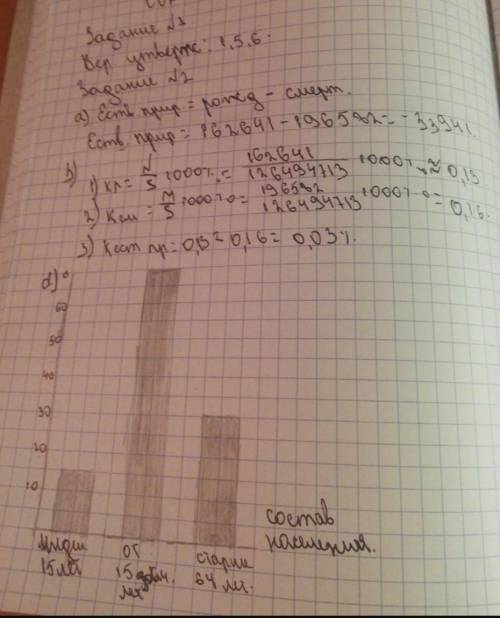 Задание №1
Вер. утвержд: 1,5,6.
Задание №2
а) Ест прир = рожд - смерт.
Ест. прир = 162641 - 196582 = -33941
1) Kр = N/S · 1000% = 162641/126494713 · 1000% ≈ 0,13
2) Kсм = M/S · 1000% = 196582/126494713 · 1000% = 0,16.
3) Kест пр = 0,13 - 0,16 = 0,03%.
60
50
40
30
20
10
15 лет
от
15 до 64
лет
старше
64 лет.
состав
населения.